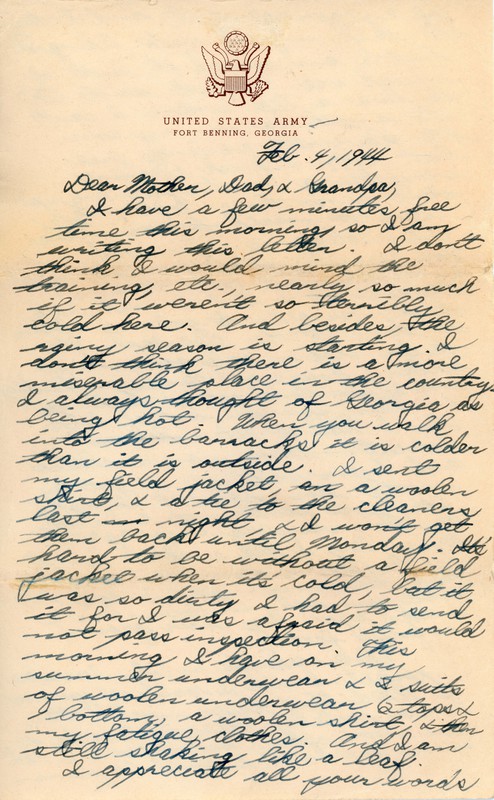 UNITED STATES ARMY
FORT BENNING, GEORGIA
Feb. 4, 1944
Dear Mother, Dad, & Grandpa,
I have a few minutes free
time this morning, so I am
writing this letter. I don't
think I would mind the
training, etc., nearly so much
if it weren't so terribly
cold here. And besides, the
rainy season is starting. I
don't think there is a more
miserable place in the country.
I always thought of Georgia as
being hot. When you walk
into the barracks it is colder
than it is outside. I sent
my field jacket an a woolen
shirt, & a tie to the cleaners
last night & I won't get
them back until Monday. Its
hard to be without a field
jacket when its cold, but it
was so dirty I had to send
it for I was afraid it would
not pass inspection. This
morning I have on my
summer underwear & 2 suits
of woolen underwear 2 tops &
1 bottom, a woolen shirt, & then
my fatigue clothes. And I am
still shaking like a leaf.
I appreciate all your words